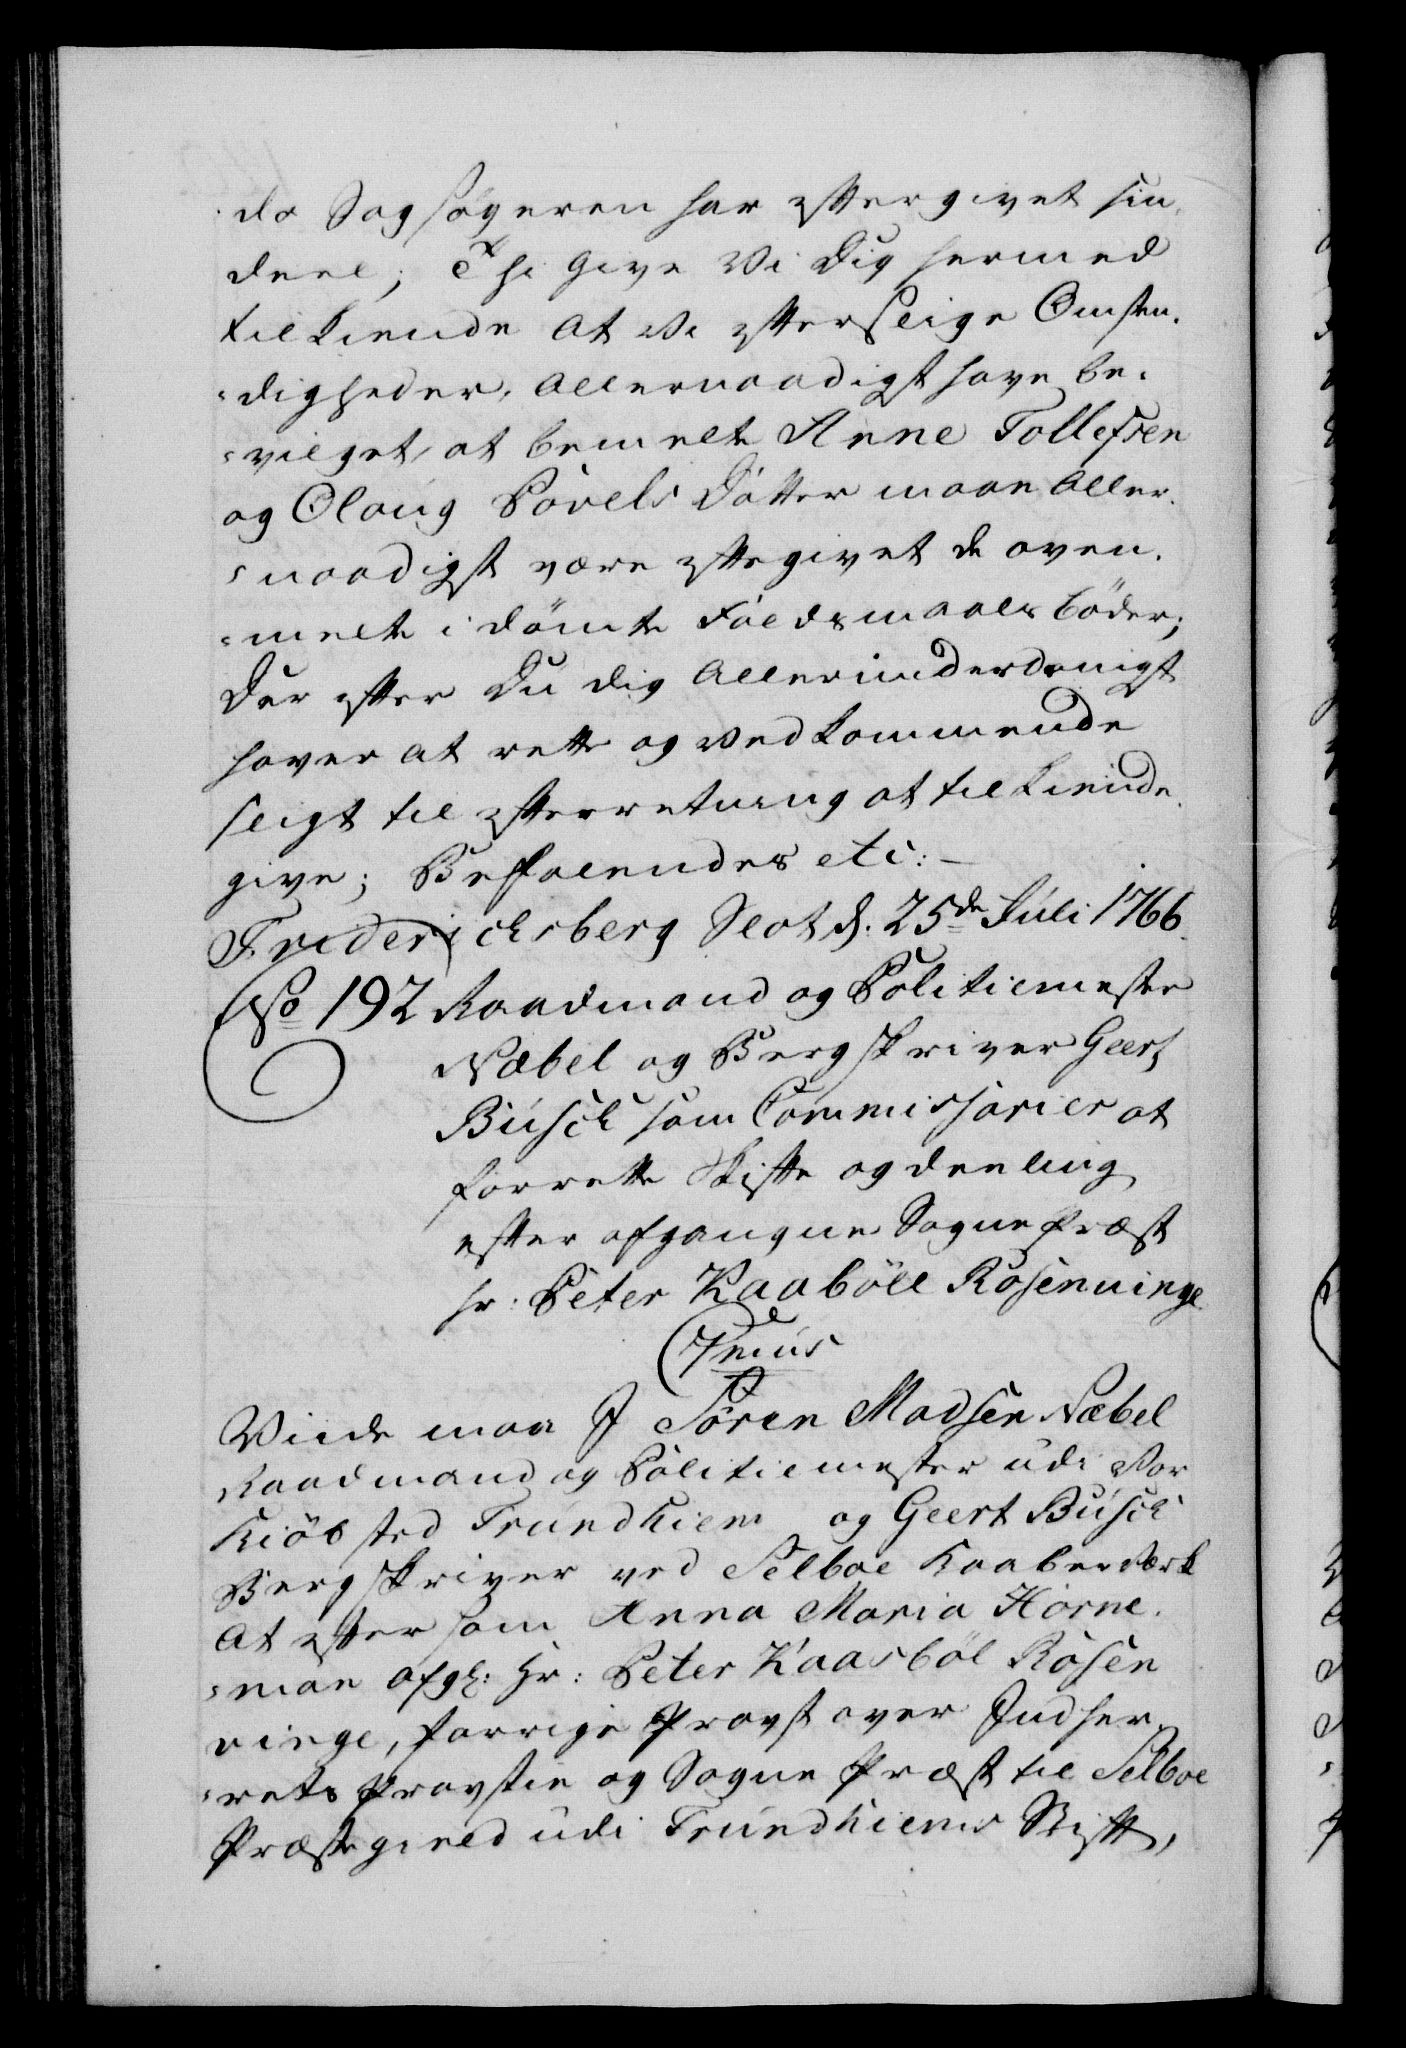 da Sagsøgeren har eftergivet sin
deel; Thi give Vi dig hermed
tilkiende at Vi efter slige Omsten-
digheder, allernaadigst have be-
vilget, at bemelte Anne Tollefsen
og Olaug Povels Dotter maae aller-
naadigst være eftergivet de oven-
melte idömte Leiermaals böder;
Der efter du dig allerunderdanigst
haver at rette og vedkommende
sligt til efterretning at tilkiende
give; Befalendes etc:-
Friderichsberg Slot d. 25de Juli 1766.
No 192 Raadmand og Politiemester
Næbel og Bergskriver Geert
Busch som Commissarier at
forrette Skifte og deeling
efter afgangne Sogne Præst
hr: Peter Kaaböll Rosenvinge
7mus
Viide maa I Sören Madsen Næbel
Raadmand og Politiemester udi Vor
Kiöbsted Trundhiem og Geert Busch
Bergskriver ved Selboe Kaaberværk
At eftersom Anna Maria Horne-
man afg: Hr: Peter Kaasböl Rosen
vinge, forrige Provst over Indher-
rets Provstie og Sogne Præst til Selboe
Præstegield udi Trundhiems Stift,